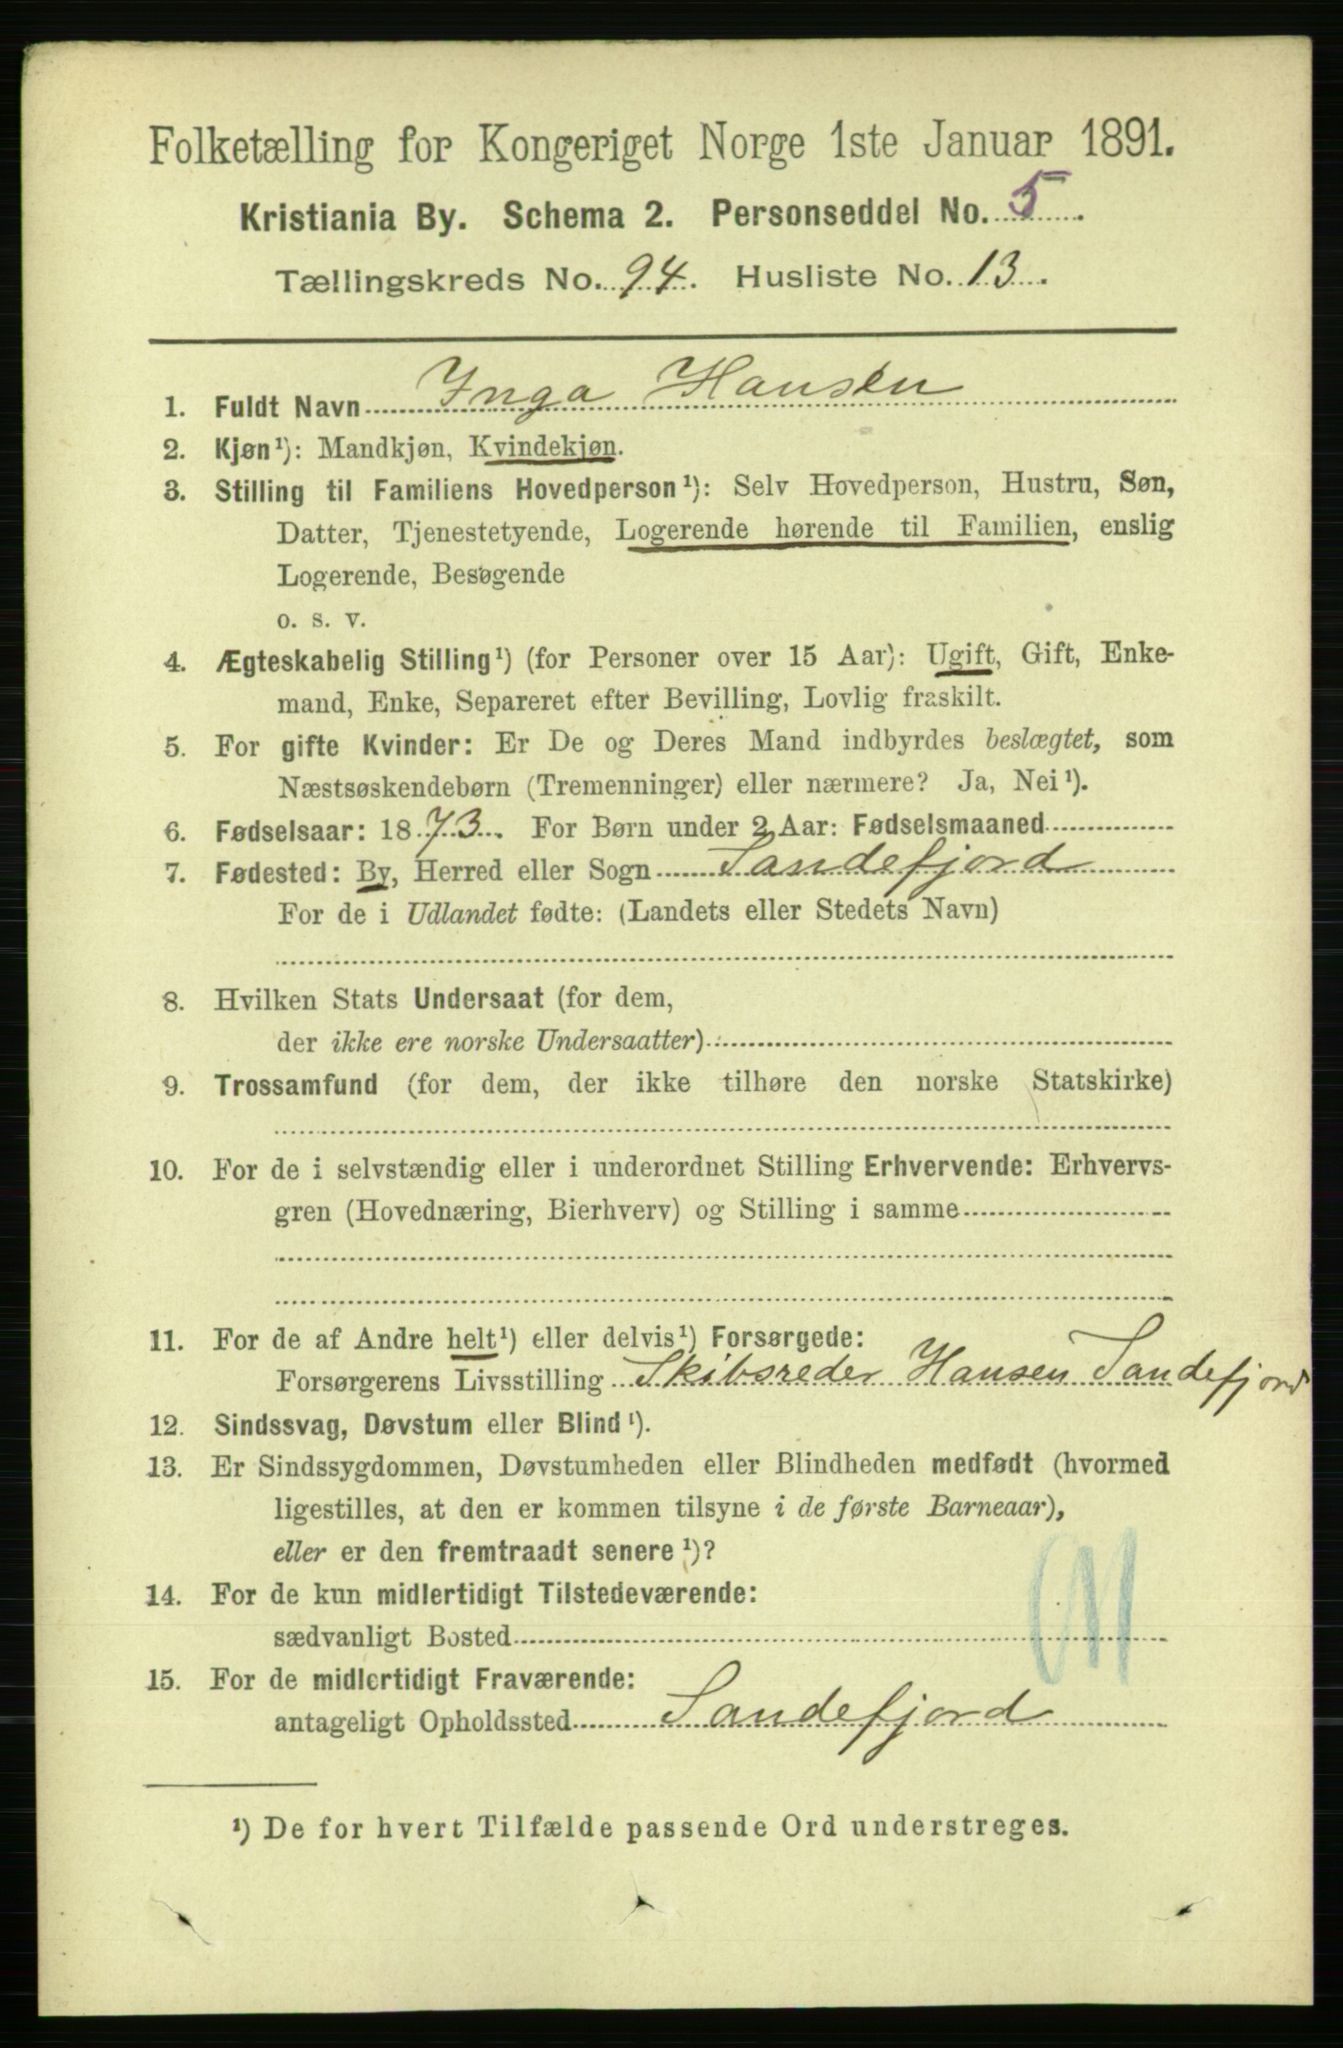 Folketælling for Kongeriget Norge 1ste Januar 1891.
Kristiania By. Schema 2. Personseddel No. 5.
Tællingskreds No. 94. Husliste No. 13.
1. Fuldt Navn Inga Hansen
2. Kjøn¹): Mandkjøn, Kvindekjøn.
3. Stilling til Familiens Hovedperson¹): Selv Hovedperson, Hustru, Søn,
Datter, Tjenestetyende, Logerende hørende til Familien, enslig
Logerende, Besøgende
o. s. v.
4. Ægteskabelig Stilling¹) (for Personer over 15 Aar): Ugift, Gift, Enke-
mand, Enke, Separeret efter Bevilling, Lovlig fraskilt.
5. For gifte Kvinder: Er De og Deres Mand indbyrdes beslægtet, som
Næstsøskendebørn (Tremenninger) eller nærmere? Ja, Nei¹).
6. Fødselsaar: 1873. For Børn under 2 Aar: Fødselsmaaned
7. Fødested: By, Herred eller Sogn Sandefjord
For de i Udlandet fødte: (Landets eller Stedets Navn)
8. Hvilken Stats Undersaat (for dem,
der ikke ere norske Undersaatter)
9. Trossamfund (for dem, der ikke tilhøre den norske Statskirke)
10. For de i selvstændig eller i underordnet Stilling Erhvervende: Erhvervs-
gren (Hovednæring, Bierhverv) og Stilling i samme
11. For de af Andre helt¹) eller delvis¹) Forsørgede:
Forsørgerens Livsstilling Skibsreder Hansen Sandefjord
12. Sindssvag, Døvstum eller Blind¹).
13. Er Sindssygdommen, Døvstumheden eller Blindheden medfødt (hvormed
ligestilles, at den er kommen tilsyne i de første Barneaar),
eller er den fremtraadt senere¹)?
14. For de kun midlertidigt Tilstedeværende:
sædvanligt Bosted
15. For de midlertidigt Fraværende:
antageligt Opholdssted Sandefjord
¹) De for hvert Tilfælde passende Ord understreges.